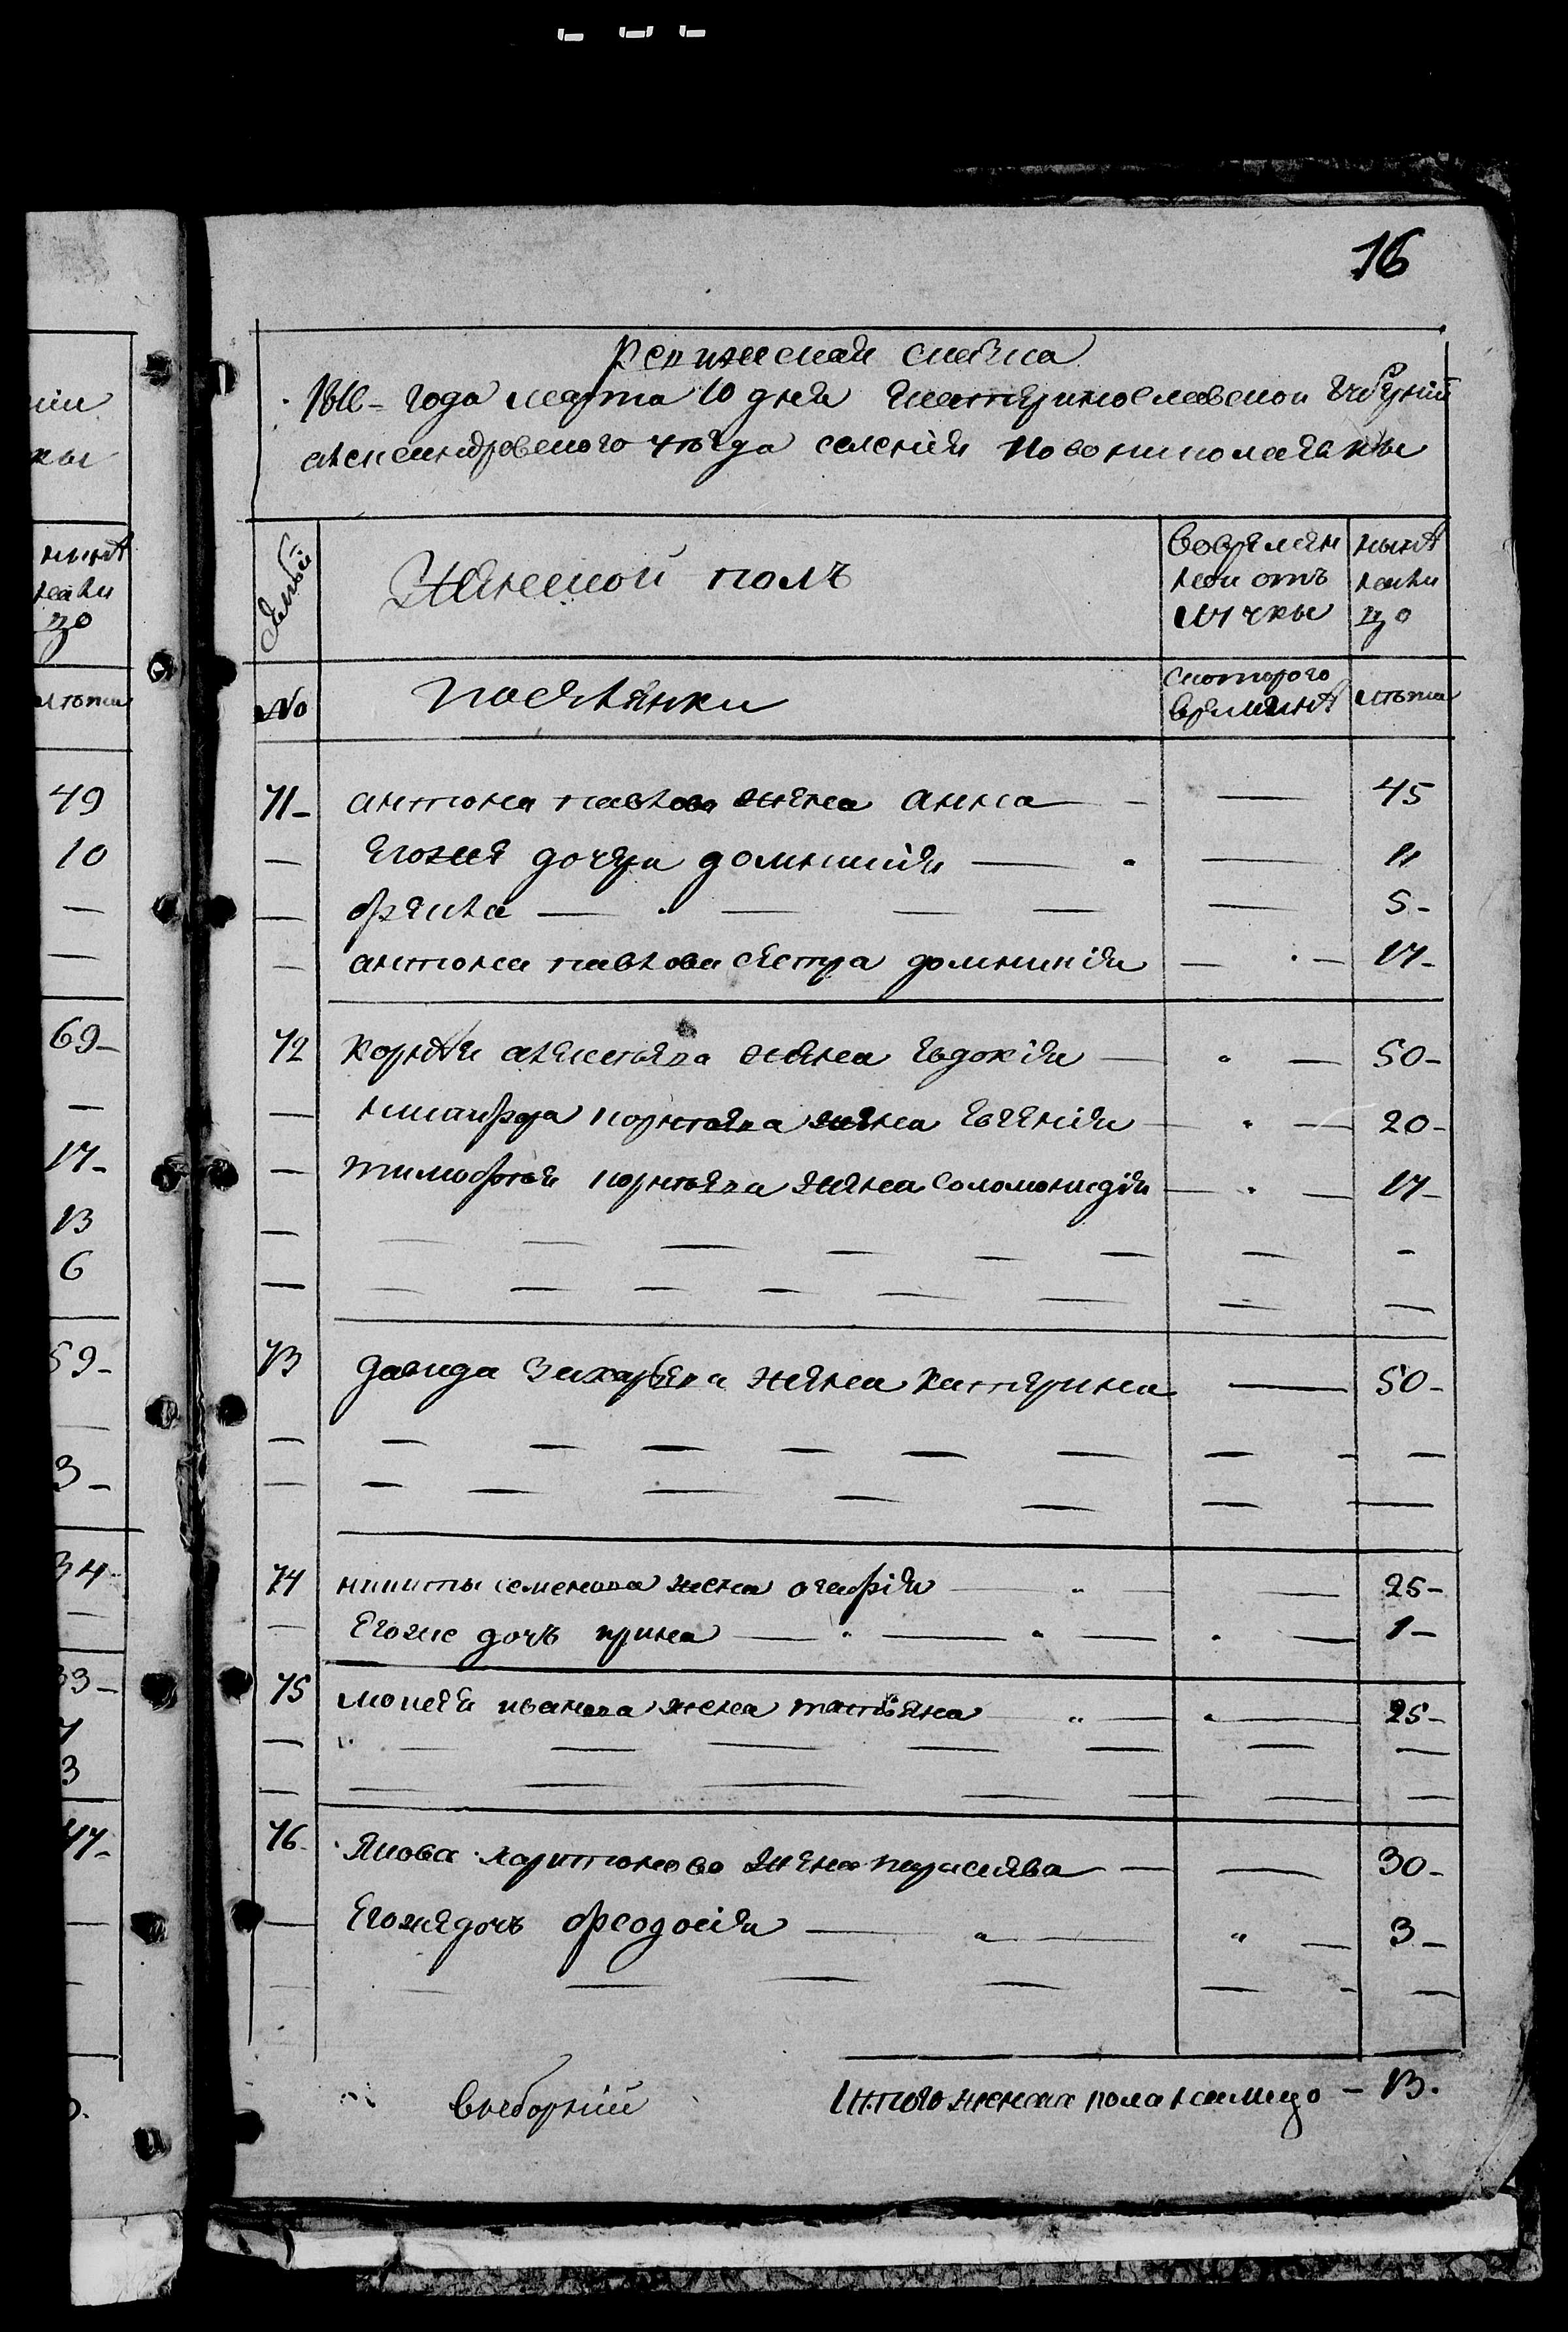 16
Ревижская скаска
1816 года марта 10 дня Екатеринославской губерний
александровского уѣзда селения Новониколаевки
Семьи
Женской полъ
вовремян
ной отъ
лучки
нынѣ
нали
цо
№
поселянки
скоторого
времянѣ
лѣта
71 антона павлова жена анна 45
Егоже дочери домникия 11
фекла 5
антона павлова сестра домникия 17
72 Корнѣя алексѣева жена Евдокия 50
никифора корнѣева жена Евгения 20
тимофѣя корнѣева жена Соломонидия 17
73 давида Захарьева жена катерина 50
74 никиты семенова жена агафия 25
Егоже дочь ирина 1
75 мосея иванова жена татьяна 25
76 Якова харитонова жена параскева 30
Егоже дочь феодосия 3
выборний
Итого женска пола налицо 13
нынѣ
нали
цо
лѣта
49
10
69
17
13
6
59
3
34
33
7
3
47